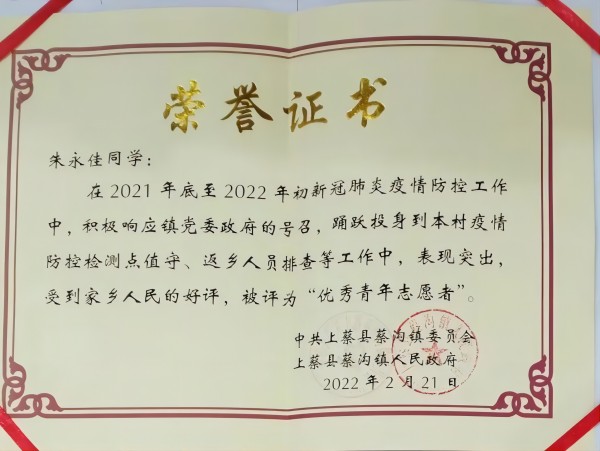 荣誉证书
朱永佳同学：
在2021年底至2022年初新冠肺炎疫情防控工作
中，积极响应镇党委政府的号召，踊跃投身到本村疫情
防控检测点值守、返乡人员排查等工作中，表现突出，
受到家乡人民的好评，被评为“优秀青年志愿者”。
中共上蔡县蔡沟镇委员会
上蔡县蔡沟镇人民政府
2022年2月21日